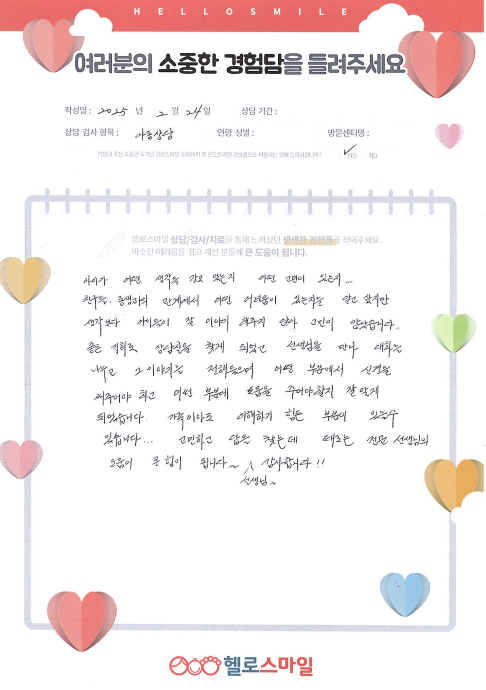 HELLOSMILE
여러분의 소중한 경험담을 들려주세요
작성일 : 2025 년 2 월 24 일 상담 기간 :
상담 검사 항목 : 아동상담 연령 성별 : 방문센터명 :
YES NO
헬로스마일 상담/검사/치료를 통해 느끼셨던 생생한 경험들을 적어주세요.
비슷한 어려움을 겪고 계신 분들께 큰 도움이 됩니다.
아이가 어떤 생각을 갖고 있는지 어떤 고민이 있는지...
친구들, 동생과의 관계에서 어떤 어려움이 있는지를 알고 싶지만
생각보다 아이들이 잘 이야기 해주지 않아 고민이 많았습니다..
좋은 기회로 상담실을 찾게 되었고 선생님을 만나 대화를
나누고 그 이야기를 전해들으며 어떤 부분에서 신경을
써주어야 하고 어떤 부분에 도움을 주어야할지 잘 알게
되었습니다. 가족이라도 이해하기 힘든 부분이 있을수
있습니다... 고민하고 답을 찾는데 때로는 전문 선생님의
도움이 큰 힘이 됩니다~ 감사합니다!!
선생님~
헬로스마일